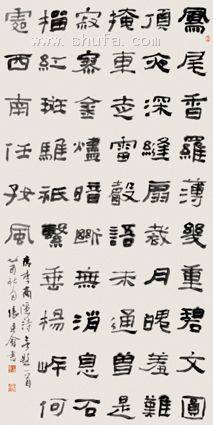 鳳尾香羅薄幾重碧文圓
頂夜深縫扇裁月魄羞難
掩車走雷聲語未通曾是
寂寥金燼暗斷無消息石
榴紅斑騅祇繫垂楊岸何
處西南任好風
唐李商隱詩無題一首
乙酉秋
shufa.com